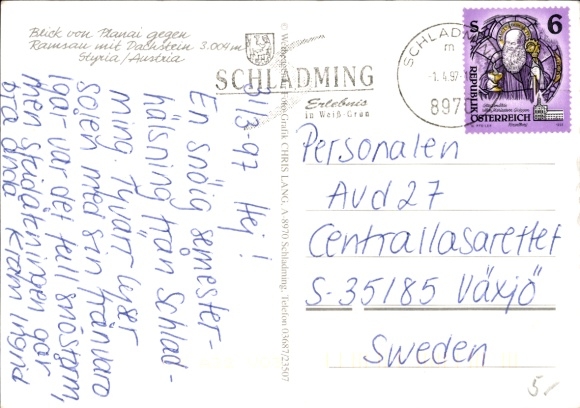 Blick von Planai gegen
Ramsau mit Dachstein 3.004m
Styria/Austria
SCHLADMING
Erlebnis
in Weiß-Grün
SCHLADMING
-1.4.97-
897
6
S
REPUBLIK
ÖSTERREICH
CHRIS LANG, A 8970 Schladming, Telefon 03687/23507
31/3-97 Hej!
En snöig semester-
hälsning från Schlad-
ming. Tyvärr lyser
solen med sin frånvaro
Igår var det full snöstorm,
men skidåkningen går
bra ändå Kram Ingrid
Personalen
Avd 27
Centrallasarettet
S-35185 Växjö
Sweden
5,-